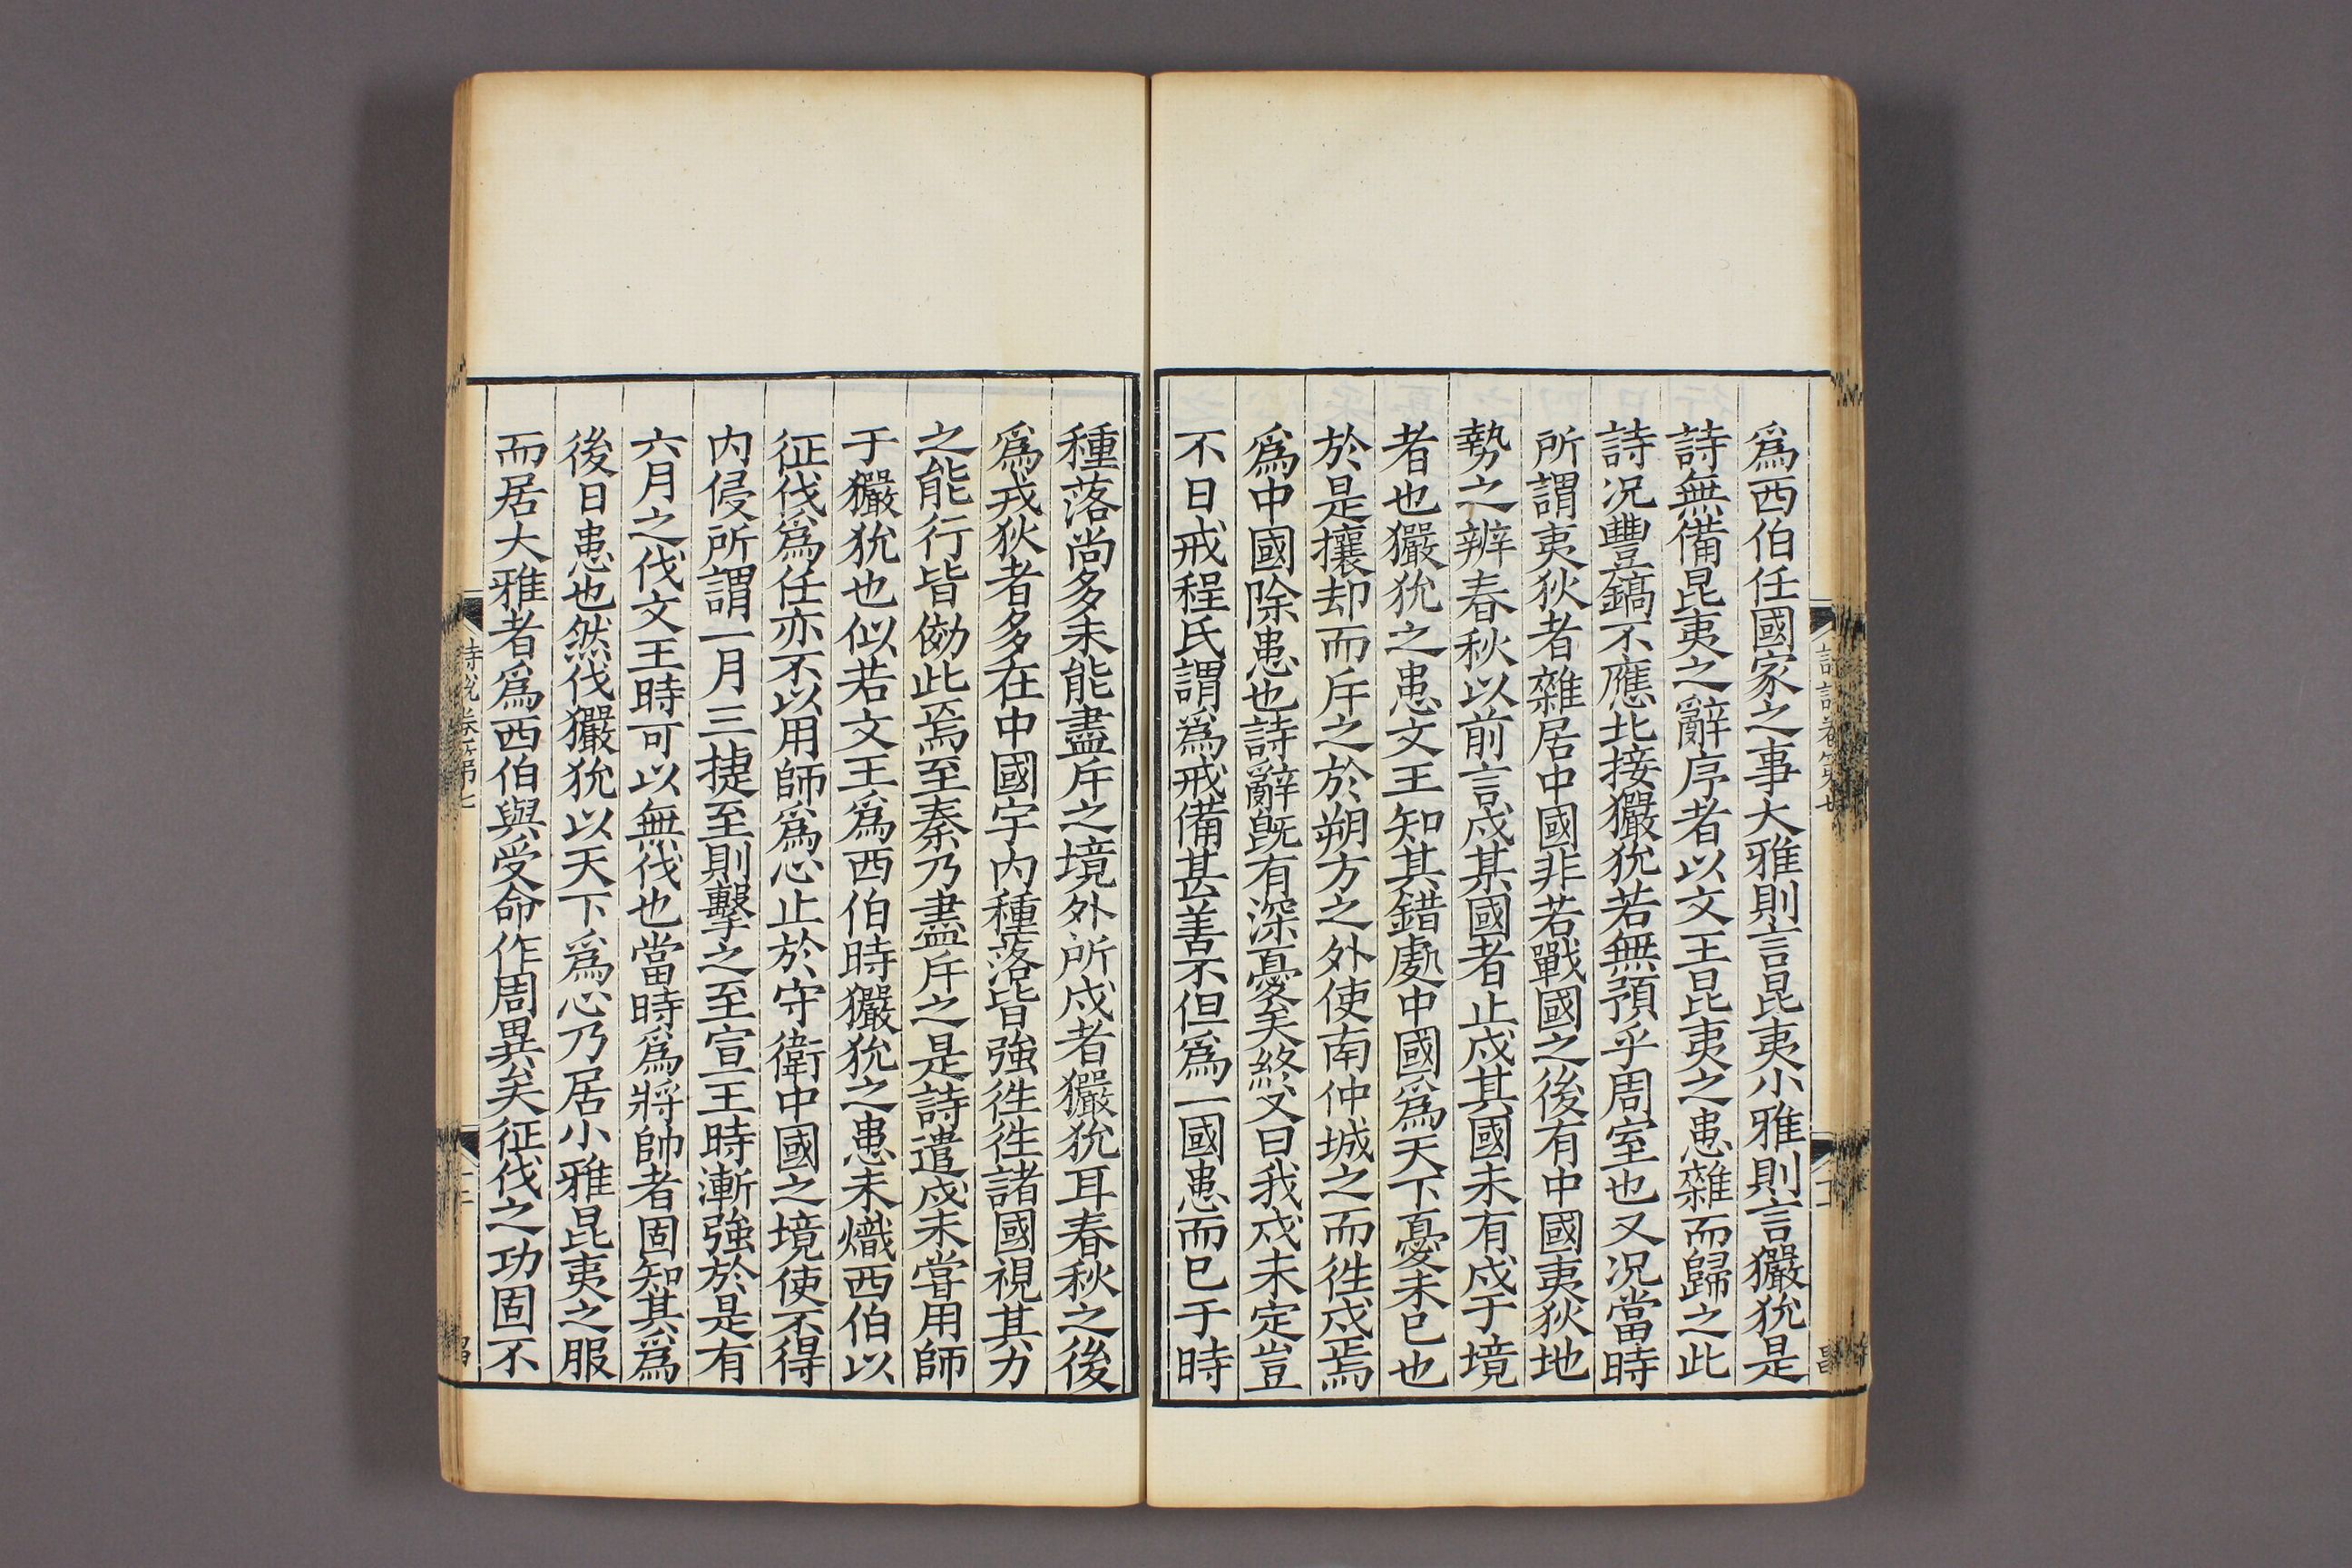 爲西伯任國家之事大雅則言昆夷小雅則言玁狁是
詩無備昆夷之辭序者以文王昆夷之患雜而歸之此
詩况豐鎬不應北接玁狁若無預乎周室也又况當時
所謂夷狄者雜居中國非若戰國之後有中國夷狄地
勢之辨春秋以前言戍某國者止戍其國未有戍于境
者也玁狁之患文王知其錯處中國爲天下憂未已也
於是攘却而斥之於朔方之外使南仲城之而徃戍焉
爲中國除患也詩辭旣有深憂矣終又曰我戍未定豈
不日戒程氏謂爲戒備甚善不但爲一國患而已于時
種落尚多未能盡斥之境外所戍者玁狁耳春秋之後
爲戎狄者多在中國宇内種落皆強徃徃諸國視其力
之能行皆効此焉至秦乃盡斥之是詩遣戍未甞用師
于玁狁也似若文王爲西伯時玁狁之患未熾西伯以
征伐爲任亦不以用師爲心止於守衛中國之境使不得
内侵所謂一月三捷至則擊之至宣王時漸強於是有
六月之伐文王時可以無伐也當時爲將帥者固知其爲
後日患也然伐玁狁以天下爲心乃居小雅昆夷之服
而居大雅者爲西伯與受命作周異矣征伐之功固不
詩說卷第七